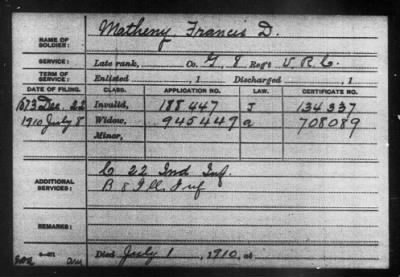 NAME OF SOLDIER: Matheny, Francis D.
SERVICE: Late rank, Co. G, 8 Reg't V.R.C.
TERM OF SERVICE: Enlisted , 1 Discharged , 1
DATE OF FILING. CLASS. APPLICATION NO. LAW. CERTIFICATE NO.
1873 Dec. 22 Invalid, 188447 J 134337
1910 July 8 Widow, 945449 a 708089
Minor,
ADDITIONAL SERVICES: C 22 Ind Inf.
B 8 Ill. Inf
REMARKS:
Died July 1, 1910, at